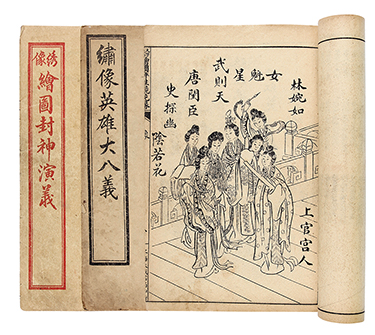 林婉如
女魁星
武則天
唐閨臣
史探幽
陰若花
上官宮人
繡像英雄大八義
绣像
繪圖封神演義